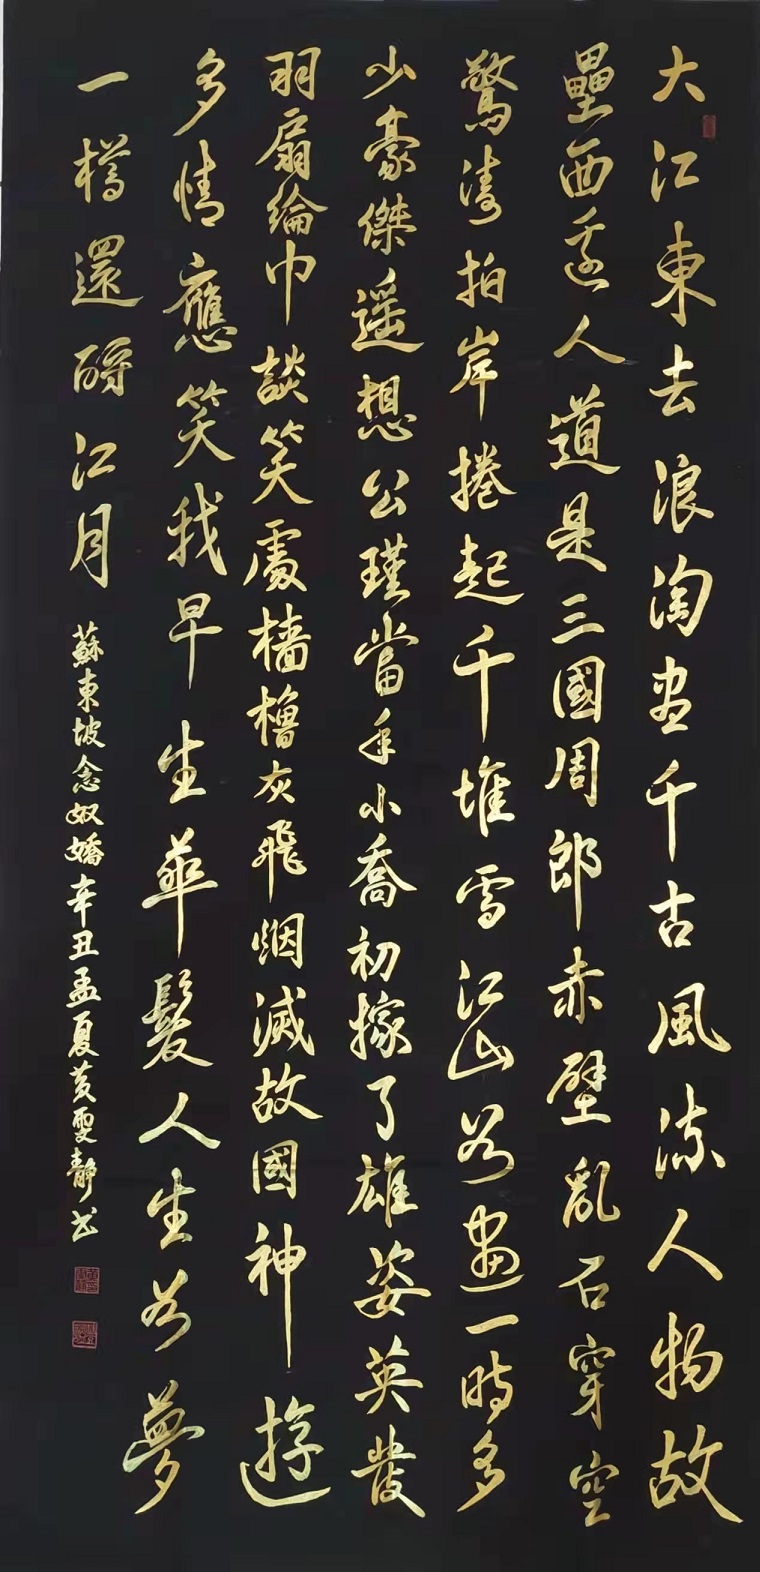 大江東去浪淘盡千古風流人物故
壘西邊人道是三國周郎赤壁亂石穿空
驚濤拍岸捲起千堆雪江山如畫一時多
少豪傑遥想公瑾當年小喬初嫁了雄姿英發
羽扇綸巾談笑處檣櫓灰飛烟滅故國神遊
多情應笑我早生華髮人生如夢
一樽還酹江月
蘇東坡念奴嬌辛丑孟夏黄雯靜书